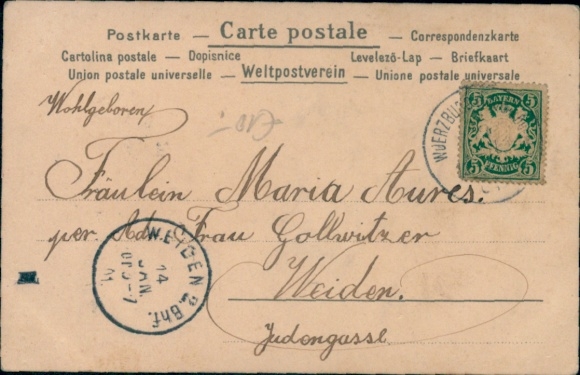 Postkarte — Carte postale — Correspondenzkarte
Cartolina postale — Dopisnice Levelező-Lap — Briefkaart
Union postale universelle — Weltpostverein — Unione postale universale
Wohlgeboren
BAYERN
5 5
5 PFENNIG 5
WUERZBU
Fräulein Maria Aures.
per. Adr. Frau Gollwitzer
Weiden.
Judengasse.
WEIDEN B. Bhf.
14
JAN.